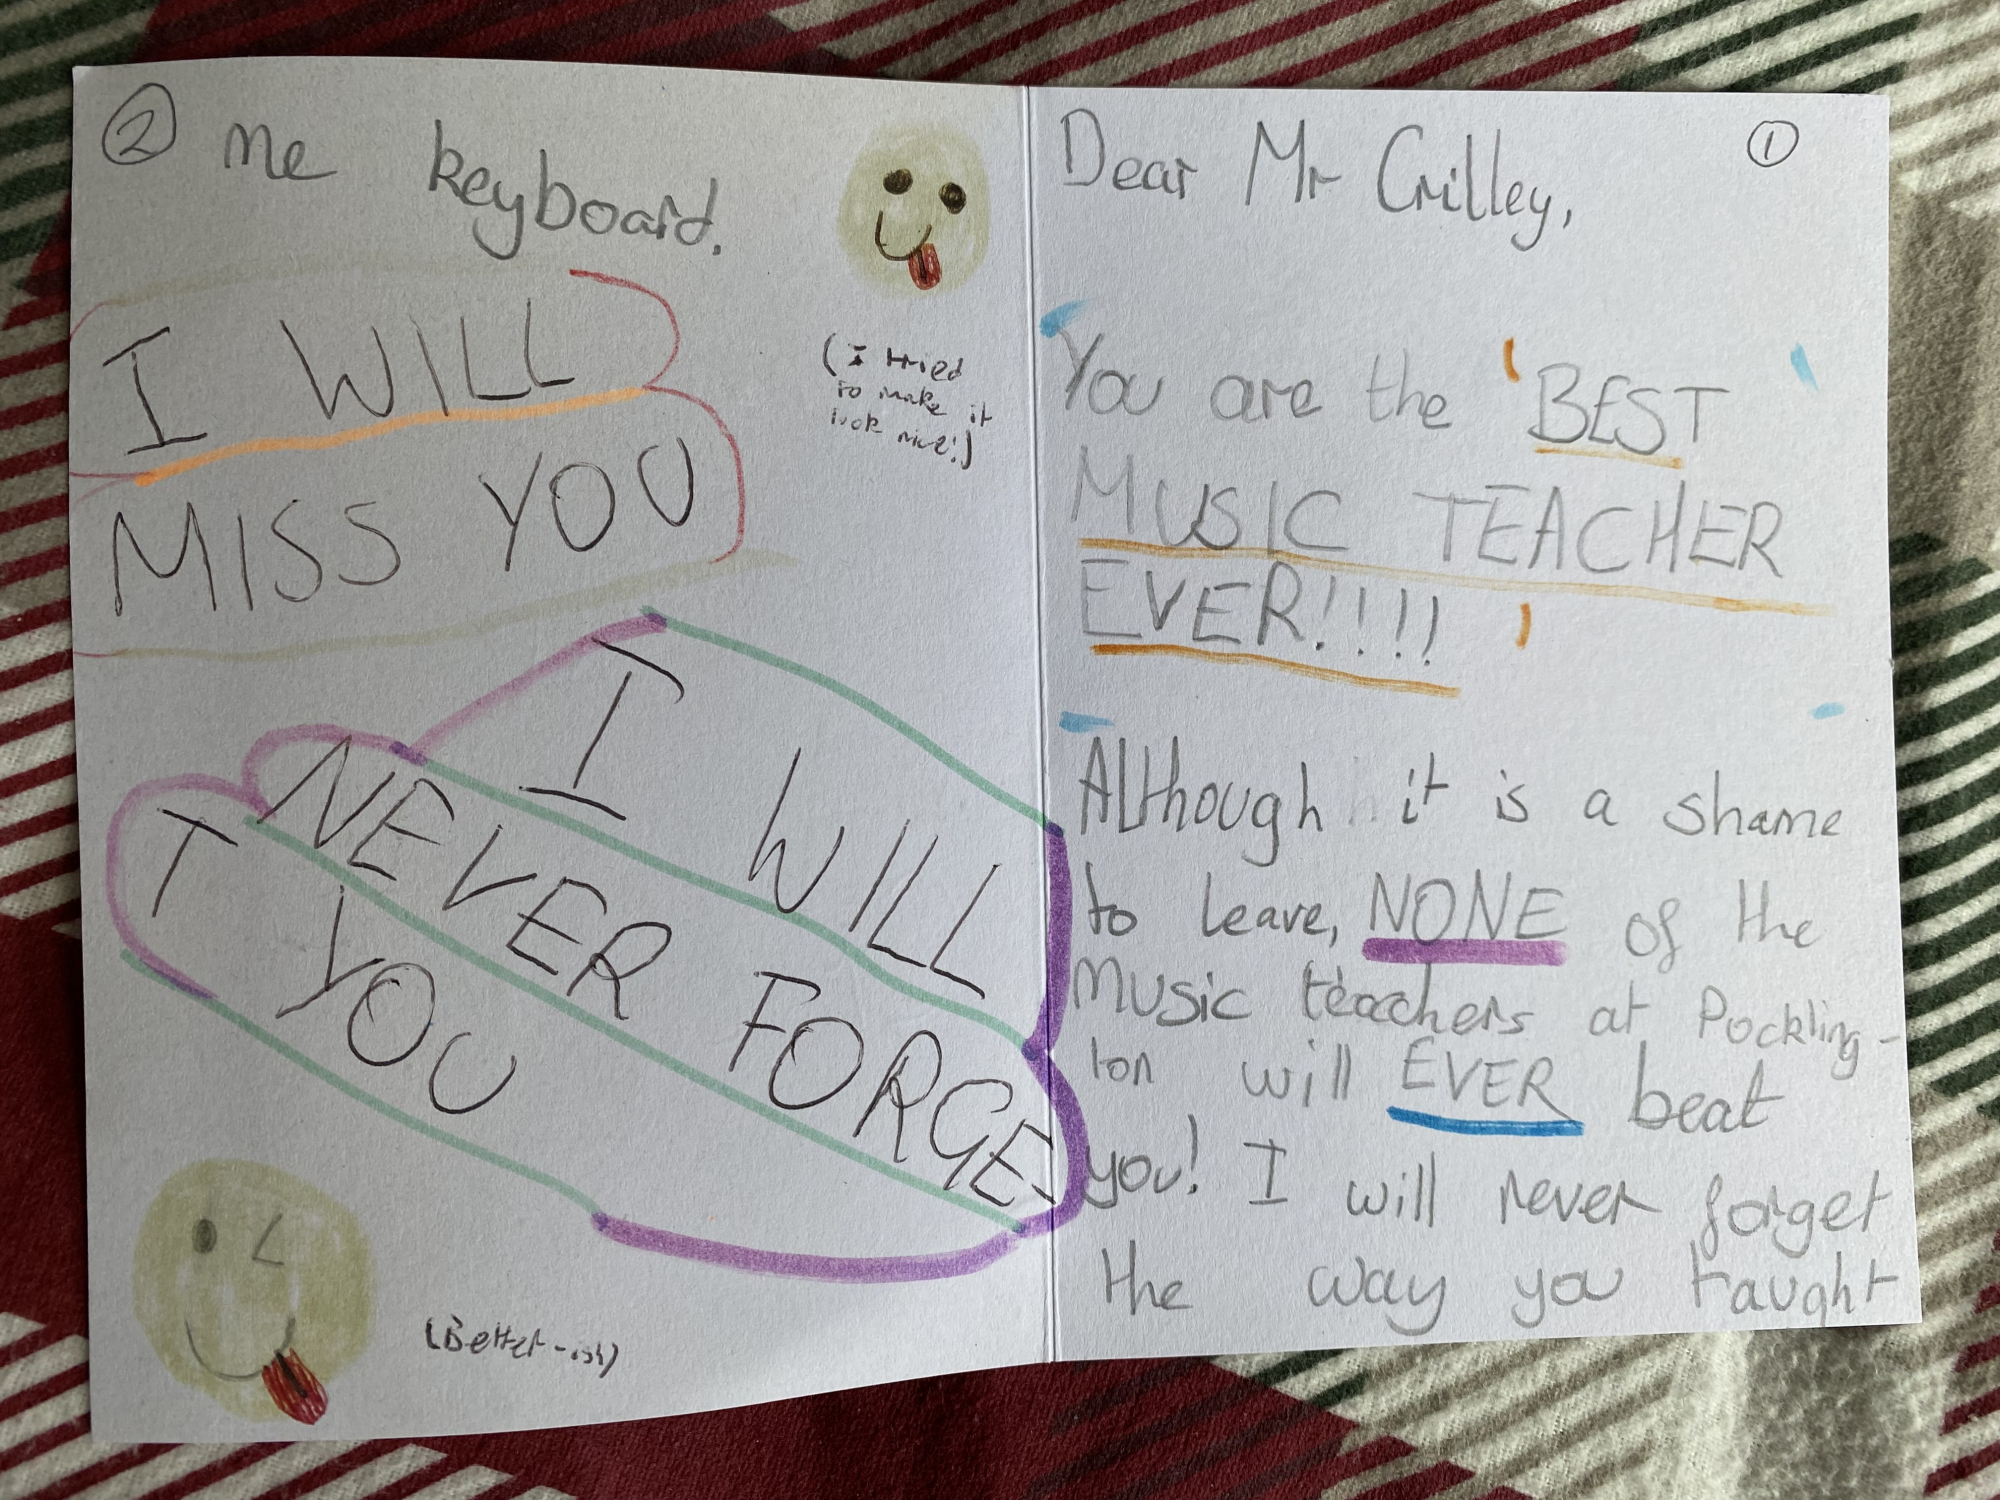 ①
Dear Mr Crilley,
You are the 'BEST
MUSIC TEACHER
EVER!!!! '
Although it is a shame
to leave, NONE of the
Music teachers at Pockling-
ton will EVER beat
you! I will never forget
the way you taught
②
me keyboard.
(I tried
to make it
look nice!)
I WILL
MISS YOU
I WILL
NEVER FORGE-
T YOU
(Better-ish)